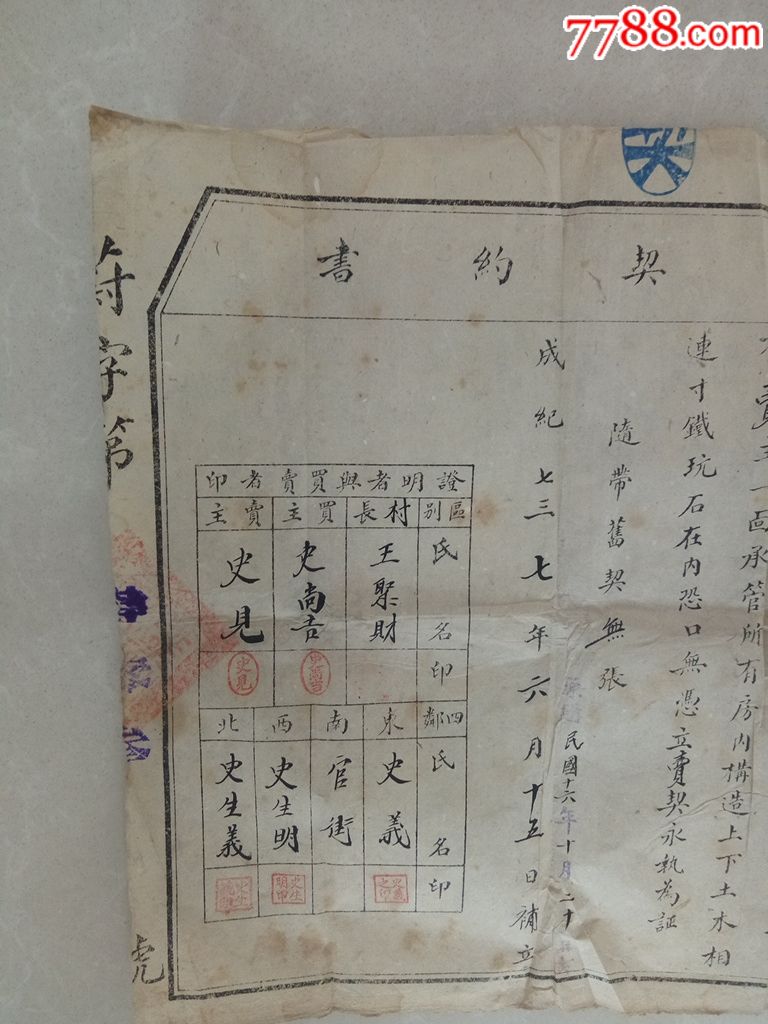 7788.com
契約書
賣主一面承管所有房内構造上下土木相
連寸鐵玩石在内恐口無憑立賣契永執為証
隨帶舊契無張
民國十六年十月二十
成紀七三七年六月十五日補立
證明者與買賣者印
區别 村長 買主 賣主
氏名 王聚財 史尚吉 史見
印 史見
四鄰 東 南 西 北
氏名 史義 官街 史生明 史生義
印 史義之印 史生明印
字第
號